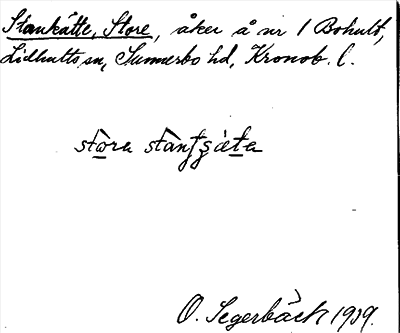 Stankätte, Store, åker å nr 1 Bohult,
Lidhults sn, Sunnerbo hd, Kronob. l.
O. Segerbäck 1939.